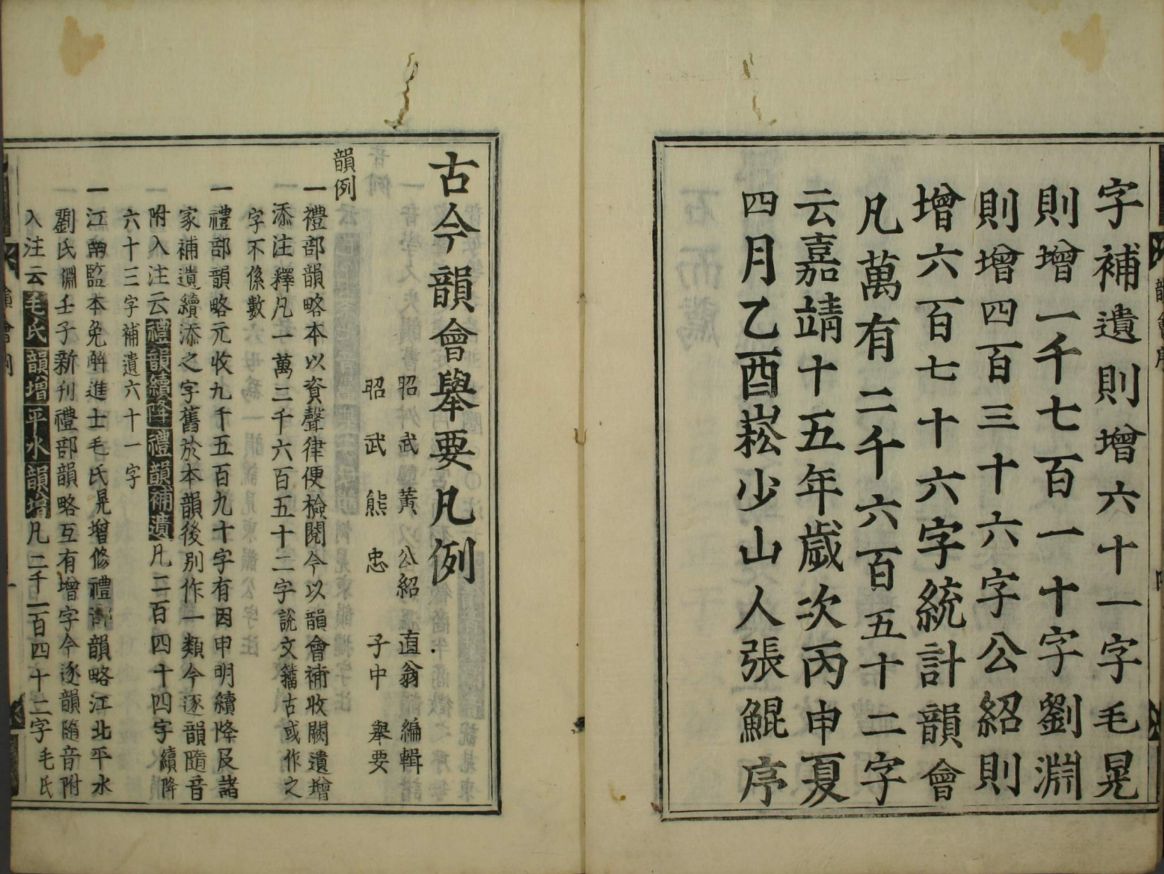 字補遺則增六十一字毛晃
則增一千七百一十字劉淵
則增四百三十六字公紹則
增六百七十六字統計韻會
凡萬有二千六百五十二字
云嘉靖十五年歲次丙申夏
四月乙酉崧少山人張鯤序
古今韻會舉要凡例
昭武黃公紹直翁編輯
昭武熊忠子中舉要
韻例
一禮部韻略本以資聲律便檢閱今以韻會補收闕遺增
添注釋凡一萬二千六百五十二字說文籀古或作之
字不係數
一禮部韻略元收九千五百九十字有因申明續降及諸
家補遺續添之字舊於本韻後別作一類今逐韻隨音
附入注云禮韻續降禮韻補遺凡二百四十四字續降
六十三字補遺六十一字
一江南監本免解進士毛氏晃增修禮部韻略江北平水
劉氏淵壬子新刊禮部韻略互有增字今逐韻隨音附
入注云毛氏韻增平水韻增凡二千一百四十二字毛氏